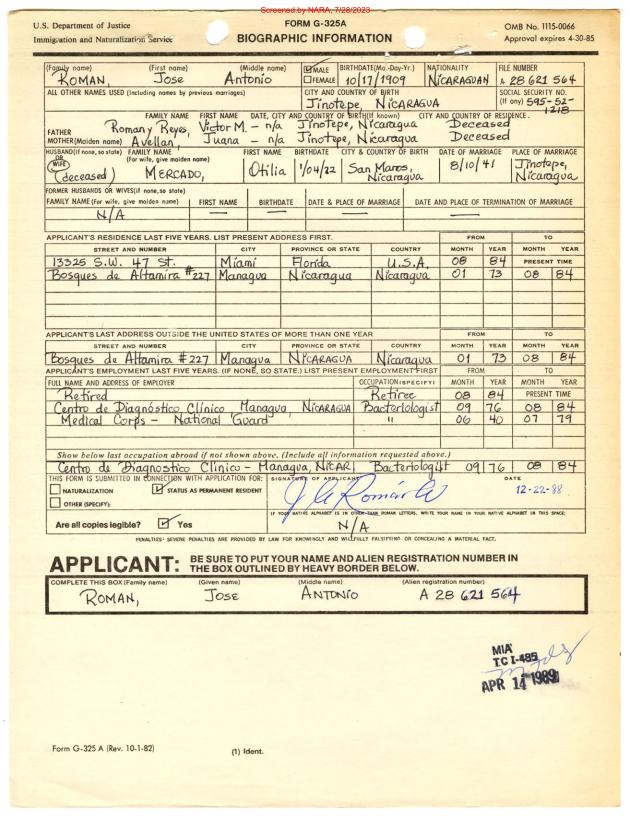 Screened by NARA, 7/28/2023
U.S. Department of Justice
Immigration and Naturalization Service
FORM G-325A
BIOGRAPHIC INFORMATION
OMB No. 1115-0066
Approval expires 4-30-85
(Family name) (First name) (Middle name) MALE FEMALE BIRTHDATE(Mo.-Day-Yr.) NATIONALITY FILE NUMBER
ROMAN, Jose Antonio 10/17/1909 NICARAGUAN A 28 621 564
ALL OTHER NAMES USED (Including names by previous marriages) CITY AND COUNTRY OF BIRTH SOCIAL SECURITY NO. (If any)
Jinotepe, NICARAGUA 595-52-1218
FAMILY NAME FIRST NAME DATE, CITY AND COUNTRY OF BIRTH(If known) CITY AND COUNTRY OF RESIDENCE.
FATHER Roman y Reyes, Victor M. - n/a Jinotepe, Nicaragua Deceased
MOTHER(Maiden name) Avellan, Juana - n/a Jinotepe, Nicaragua Deceased
HUSBAND(If none, so state) OR WIFE FAMILY NAME (For wife, give maiden name) FIRST NAME BIRTHDATE CITY & COUNTRY OF BIRTH DATE OF MARRIAGE PLACE OF MARRIAGE
(deceased) MERCADO, Otilia 1/04/22 San Marcos, Nicaragua 8/10/41 Jinotepe, Nicaragua
FORMER HUSBANDS OR WIVES(if none, so state)
FAMILY NAME (For wife, give maiden name) FIRST NAME BIRTHDATE DATE & PLACE OF MARRIAGE DATE AND PLACE OF TERMINATION OF MARRIAGE
N/A — — — —
APPLICANT'S RESIDENCE LAST FIVE YEARS. LIST PRESENT ADDRESS FIRST. FROM TO
STREET AND NUMBER CITY PROVINCE OR STATE COUNTRY MONTH YEAR MONTH YEAR
13325 S.W. 47 St. Miami Florida U.S.A. 08 84 PRESENT TIME
Bosques de Altamira #227 Managua Nicaragua Nicaragua 01 73 08 84
APPLICANT'S LAST ADDRESS OUTSIDE THE UNITED STATES OF MORE THAN ONE YEAR FROM TO
STREET AND NUMBER CITY PROVINCE OR STATE COUNTRY MONTH YEAR MONTH YEAR
Bosques de Altamira #227 Managua NICARAGUA Nicaragua 01 73 08 84
APPLICANT'S EMPLOYMENT LAST FIVE YEARS. (IF NONE, SO STATE.) LIST PRESENT EMPLOYMENT FIRST FROM TO
FULL NAME AND ADDRESS OF EMPLOYER OCCUPATION(SPECIFY) MONTH YEAR MONTH YEAR
Retired Retiree 08 84 PRESENT TIME
Centro de Diagnóstico Clínico Managua, NICARAGUA Bacteriologist 09 76 08 84
Medical Corps - National Guard " 06 40 07 79
Show below last occupation abroad if not shown above. (Include all information requested above.)
Centro de Diagnostico Clinico - Managua, NICAR Bacteriologist 09 76 08 84
THIS FORM IS SUBMITTED IN CONNECTION WITH APPLICATION FOR: SIGNATURE OF APPLICANT DATE
NATURALIZATION STATUS AS PERMANENT RESIDENT 12-22-88
OTHER (SPECIFY):
IF YOUR NATIVE ALPHABET IS IN OTHER THAN ROMAN LETTERS, WRITE YOUR NAME IN YOUR NATIVE ALPHABET IN THIS SPACE:
Are all copies legible? Yes N/A
PENALTIES: SEVERE PENALTIES ARE PROVIDED BY LAW FOR KNOWINGLY AND WILLFULLY FALSIFYING OR CONCEALING A MATERIAL FACT.
APPLICANT: BE SURE TO PUT YOUR NAME AND ALIEN REGISTRATION NUMBER IN
THE BOX OUTLINED BY HEAVY BORDER BELOW.
COMPLETE THIS BOX (Family name) (Given name) (Middle name) (Alien registration number)
ROMAN, JOSE ANTONIO A 28 621 564
MIA
TC I-485
APR 14 1989
Form G-325 A (Rev. 10-1-82) (1) Ident.